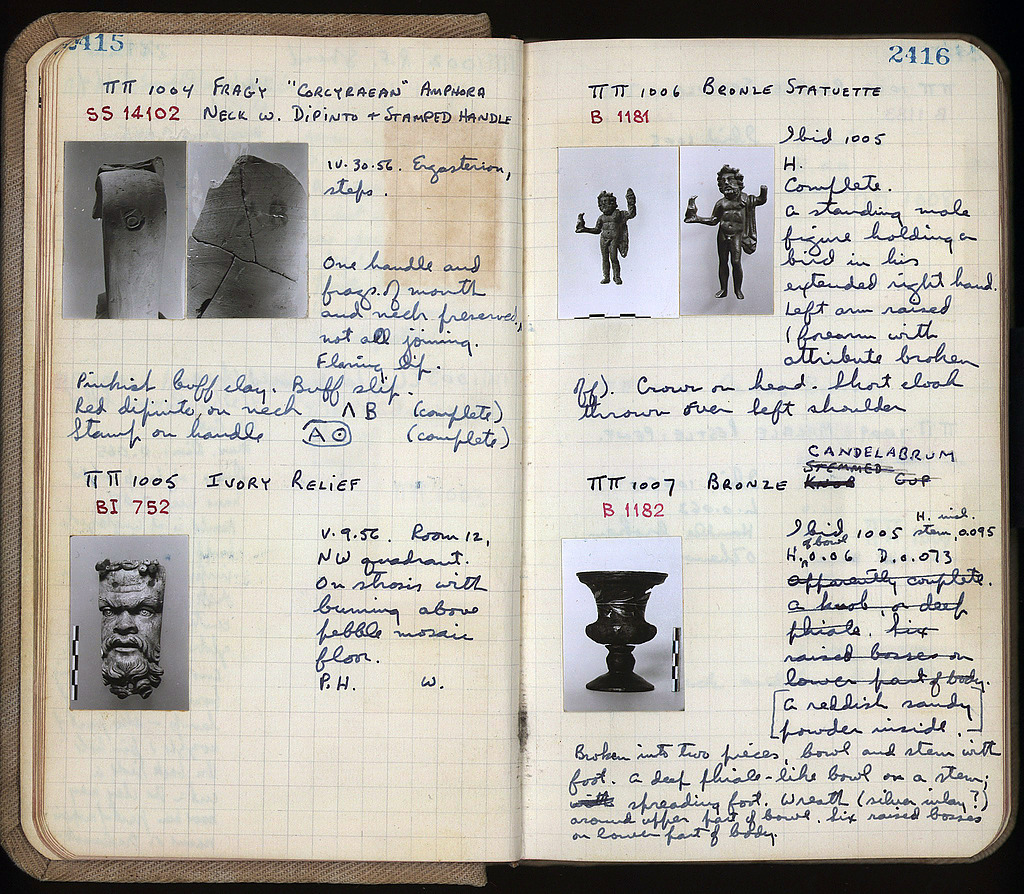 2415
ΠΠ 1004 FRAG'Y "CORCYRAEAN" AMPHORA
SS 14102 NECK W. DIPINTO + STAMPED HANDLE
IV.30.56. Ergasterion,
steps.
One handle and
frags. of mouth
and neck preserved,
not all joining.
Flaring lip.
Pinkish buff clay. Buff slip.
Red dipinto, on neck Λ B (complete)
Stamp on handle A⊙ (complete)
ΠΠ 1005 IVORY RELIEF
BI 752
V.9.56. Room 12,
NW quadrant.
On strosis with
burning above
pebble mosaic
floor.
P.H. W.
2416
ΠΠ 1006 BRONZE STATUETTE
B 1181
Ibid 1005
H.
Complete.
A standing male
figure holding a
bird in his
extended right hand.
Left arm raised
(forearm with
attribute broken
off). Crown on head. Short cloak
thrown over left shoulder
CANDELABRUM
STEMMED
ΠΠ 1007 BRONZE KNOB CUP
B 1182
H. incl.
Ibid 1005 stem, 0.095
of bowl
H. 0.06 D. 0.073
Apparently complete.
A knob, or deep
phiale. Six
raised bosses on
lower part of body.
[A reddish sandy
powder inside.]
Broken into two pieces, bowl and stem with
foot. A deep phiale-like bowl on a stem;
with spreading foot. Wreath (silver inlay?)
around upper part of bowl. Six raised bosses
on lower part of body.